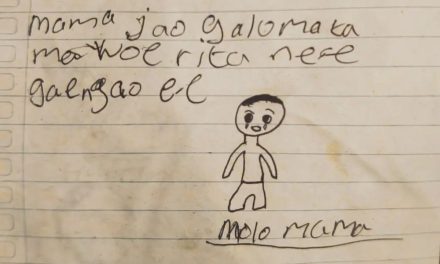 mama jao galomaka
mawoe rita nese
gaengao e-e
molo mama